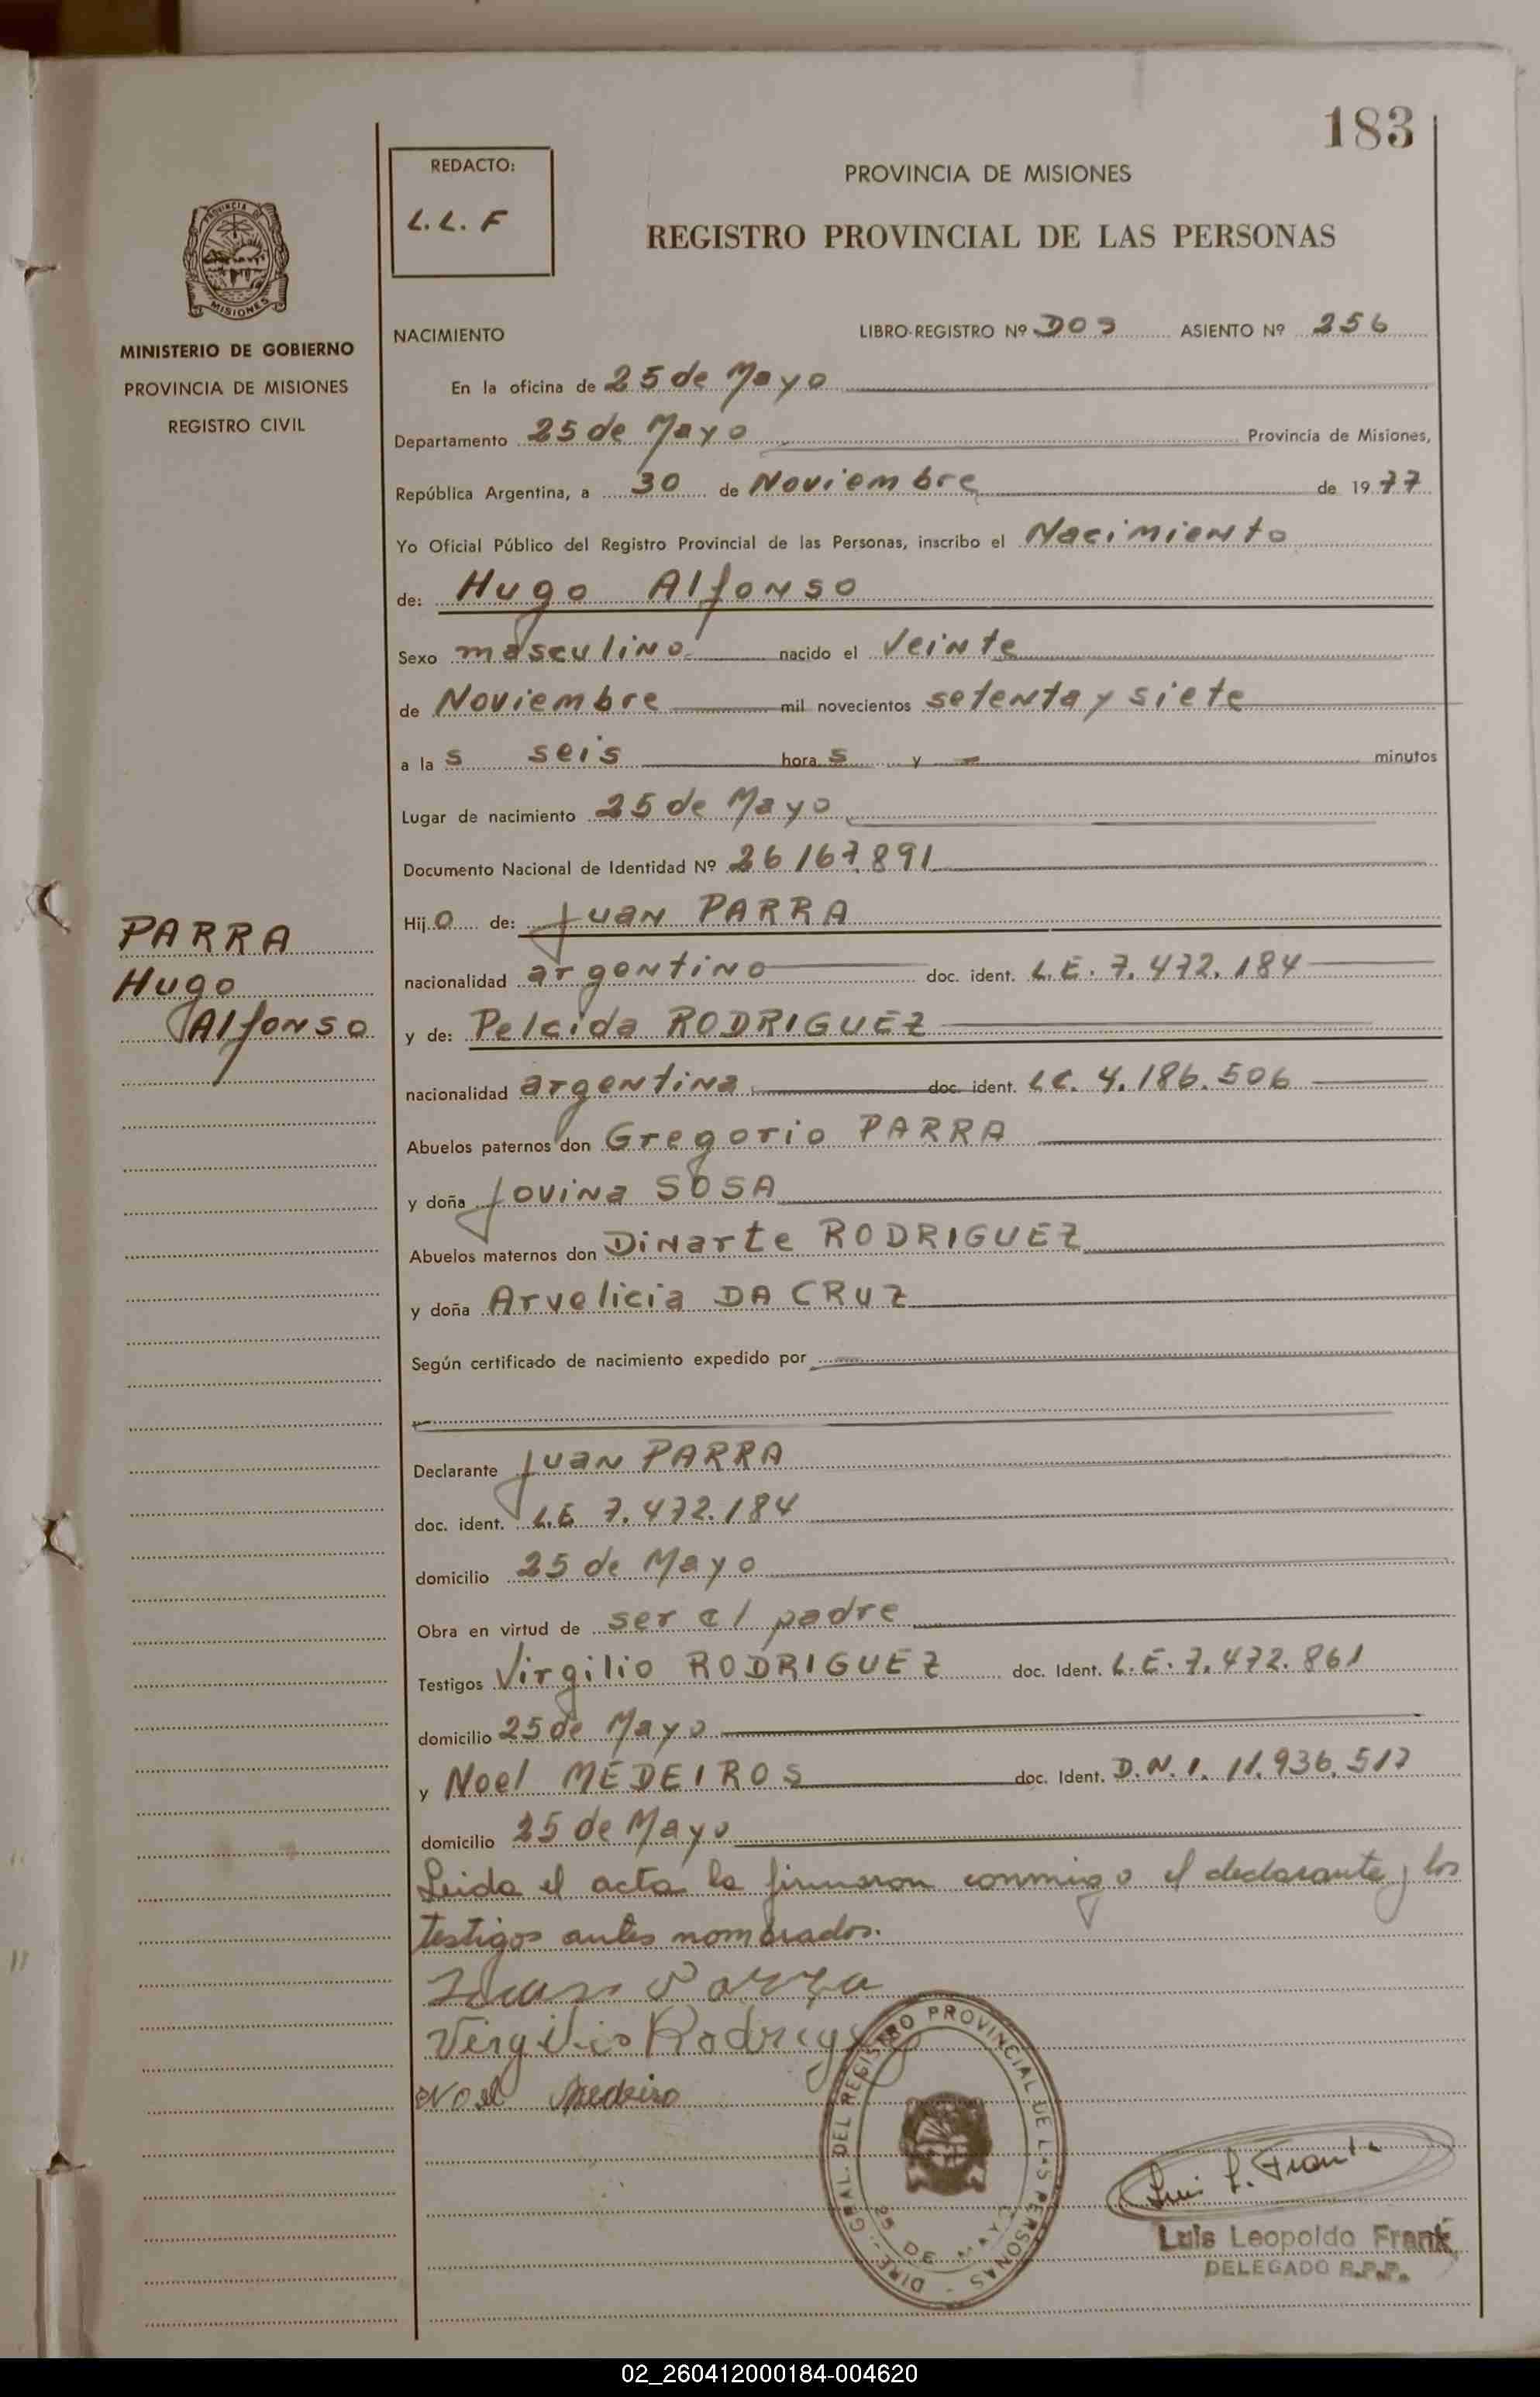 183
REDACTO:
L.L.F
PROVINCIA DE MISIONES
REGISTRO PROVINCIAL DE LAS PERSONAS
PROVINCIA DE
MISIONES
MINISTERIO DE GOBIERNO
PROVINCIA DE MISIONES
REGISTRO CIVIL
NACIMIENTO LIBRO-REGISTRO Nº DOS ASIENTO Nº 256
En la oficina de 25 de Mayo
Departamento 25 de Mayo Provincia de Misiones,
República Argentina, a 30 de Noviembre de 1977
Yo Oficial Público del Registro Provincial de las Personas, inscribo el Nacimiento
de: Hugo Alfonso
Sexo masculino nacido el Veinte
de Noviembre mil novecientos setenta y siete
a la s seis hora s y minutos
Lugar de nacimiento 25 de Mayo
Documento Nacional de Identidad Nº 26167.891
Hijo de: Juan PARRA
PARRA
Hugo
Alfonso
nacionalidad argentino doc. ident. L.E. 7.472.184
y de: Pelcida RODRIGUEZ
nacionalidad argentina doc. ident. L.C. 4.186.506
Abuelos paternos don Gregorio PARRA
y doña Jovina SOSA
Abuelos maternos don Dinarte RODRIGUEZ
y doña Arvelicia DA CRUZ
Según certificado de nacimiento expedido por
Declarante Juan PARRA
doc. ident. L.E 7.472.184
domicilio 25 de Mayo
Obra en virtud de ser el padre
Testigos Virgilio RODRIGUEZ doc. Ident. L.E. 7.472.861
domicilio 25 de Mayo
y Noel MEDEIROS doc. Ident. D.N.I. 11.936.517
domicilio 25 de Mayo
Leida el acta la firmaron conmigo el declarante y los
testigos antes nombrados.
Juan Parra
Vergilio Rodrigu
Noel Medeiro
DIRE. GRAL. DEL REGISTRO PROVINCIAL DE LAS PERSONAS
25 DE MAYO
Luis L. Frank
Luis Leopoldo Frank
DELEGADO R.P.P.
02_260412000184-004620